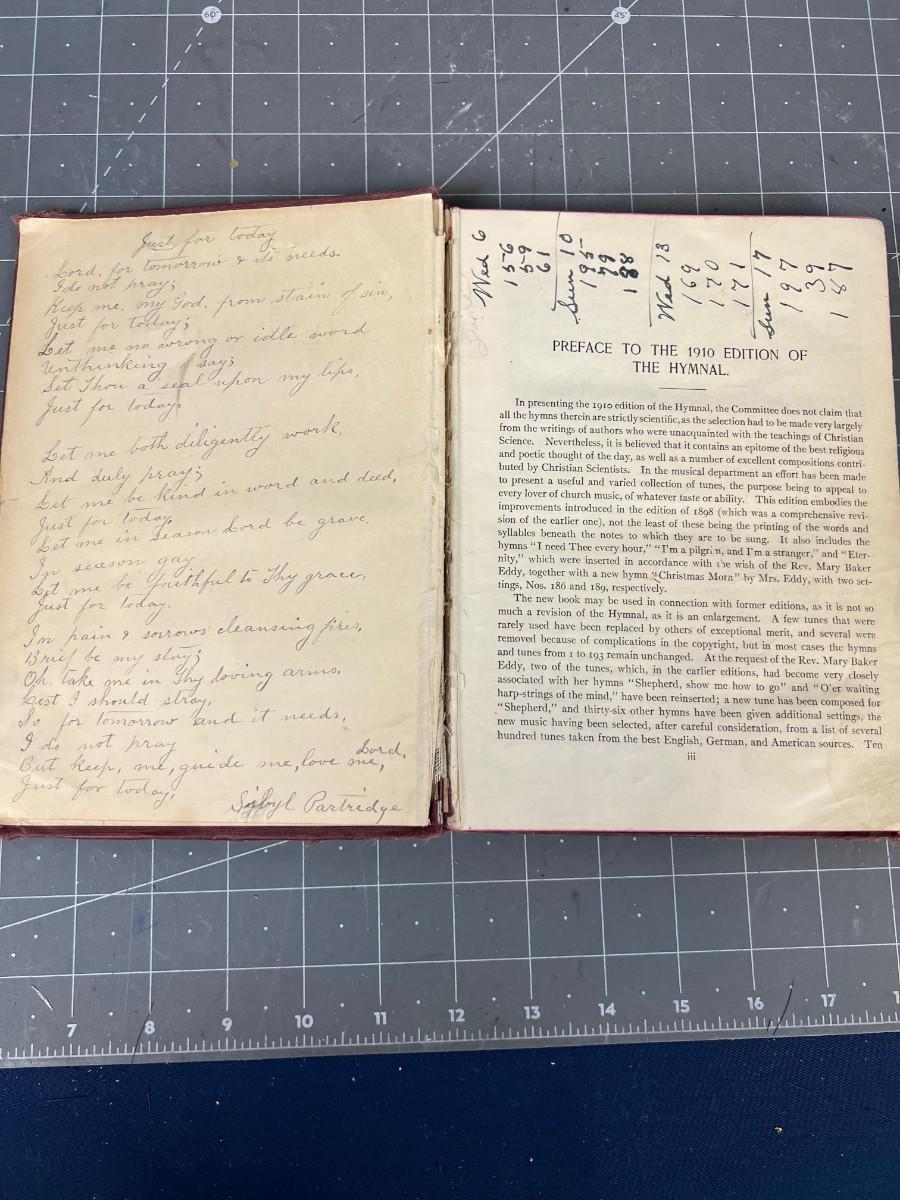 Just for today
Lord, for tomorrow & its needs.
I do not pray;
Keep me, my God, from stain of sin,
Just for today;
Let me no wrong or idle word
Unthinking say;
Set Thou a seal upon my lips,
Just for today.
Let me both diligently work,
And duly pray;
Let me be kind in word and deed,
Just for today,
Let me in season Lord be grave.
In season gay
Let me be faithful to Thy grace,
Just for today.
In pain & sorrows cleansing fires,
Brief be my stay;
Oh take me in Thy loving arms.
Lest I should stray,
So for tomorrow and it needs,
I do not pray
But keep, me, guide me, love me, Lord,
Just for today,
Sibyl Partridge
Wed 6
156
59
61
Sun 10
195
59
188
Wed 13
169
170
171
Sun 17
197
39
187
PREFACE TO THE 1910 EDITION OF
THE HYMNAL.
In presenting the 1910 edition of the Hymnal, the Committee does not claim that
all the hymns therein are strictly scientific, as the selection had to be made very largely
from the writings of authors who were unacquainted with the teachings of Christian
Science. Nevertheless, it is believed that it contains an epitome of the best religious
and poetic thought of the day, as well as a number of excellent compositions contri-
buted by Christian Scientists. In the musical department an effort has been made
to present a useful and varied collection of tunes, the purpose being to appeal to
every lover of church music, of whatever taste or ability. This edition embodies the
improvements introduced in the edition of 1898 (which was a comprehensive revi-
sion of the earlier one), not the least of these being the printing of the words and
syllables beneath the notes to which they are to be sung. It also includes the
hymns "I need Thee every hour," "I'm a pilgrim, and I'm a stranger," and "Eter-
nity," which were inserted in accordance with the wish of the Rev. Mary Baker
Eddy, together with a new hymn "Christmas Morn" by Mrs. Eddy, with two set-
tings, Nos. 186 and 189, respectively.
The new book may be used in connection with former editions, as it is not so
much a revision of the Hymnal, as it is an enlargement. A few tunes that were
rarely used have been replaced by others of exceptional merit, and several were
removed because of complications in the copyright, but in most cases the hymns
and tunes from 1 to 193 remain unchanged. At the request of the Rev. Mary Baker
Eddy, two of the tunes, which, in the earlier editions, had become very closely
associated with her hymns "Shepherd, show me how to go" and "O'er waiting
harp-strings of the mind," have been reinserted; a new tune has been composed for
"Shepherd," and thirty-six other hymns have been given additional settings, the
new music having been selected, after careful consideration, from a list of several
hundred tunes taken from the best English, German, and American sources. Ten
iii
60°
45°
7 8 9 10 11 12 13 14 15 16 17